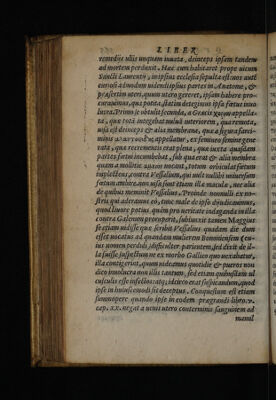 LIBER
remedijs ullis unquam inuata, deinceps ipsam tandem
ad mortem perduxit. Hæc cum haberet prope uicum
Sancti Laurentij, in ipsius ecclesia sepulta est: nos autē
curiosi admodum uidendi ipsius partes in Anatome, &
præsertim uteri, quum utero gereret, ipsam habere pro-
curauimus, qua potita, statim deteximus ipsa fœtus inuo
lucra. Primo se obtulit secunda, a Græcis appella-
ta, quæ tota integebat uulua anteriorem, quæremota,
uisa est deinceps & alia membrana, quæ a figura farci-
minis appellabitur, ex semineo semine gene
rata, qua recremenia erat plena, quæ iuxta quasdam
partes fœtui incumbebat, sub qua erat & alia membra
quam a mollitie uocant, totum orbiculo fœtum
implectens, contra Vessalium, qui uult nulli bi uniuersum
fœtum ambire. non uisæ sunt etiam illæ maculæ, nec aliæ
de quibus meminit Vessalius. Proinde nonnulli ex no-
stris qui aderant eō, tunc male de ipso dijudicauimus,
quod linores potius, quàm pro ueritate indaganda in illa
contra Galenum prorupereit, subtunxit tamen Magnus
se etiam uidisse quæ scribit Vessalius quadam die dum
esset uocatus ad quandam mulierem Bononiensem (cu
ius nomen perdidi) difficulter parientem, sed dixit il-
la suisse suspectum ne ex morbo Gallico quo uexabatur,
illa contigerint, quum uideamus quotidie & pueros non
dico inuolucra non illis tantum, sed etiam quibusdam ul
cusculis esse infectos: atq; id circo erat suspicandum, quod
ipse in huiuscemodi sit deceptus. Conquestus est etiam
summopere quando ipse in eodem prægrandi libro. v.
cap. xx. negat a neruis utero conterminis sanguinem ad
mamil